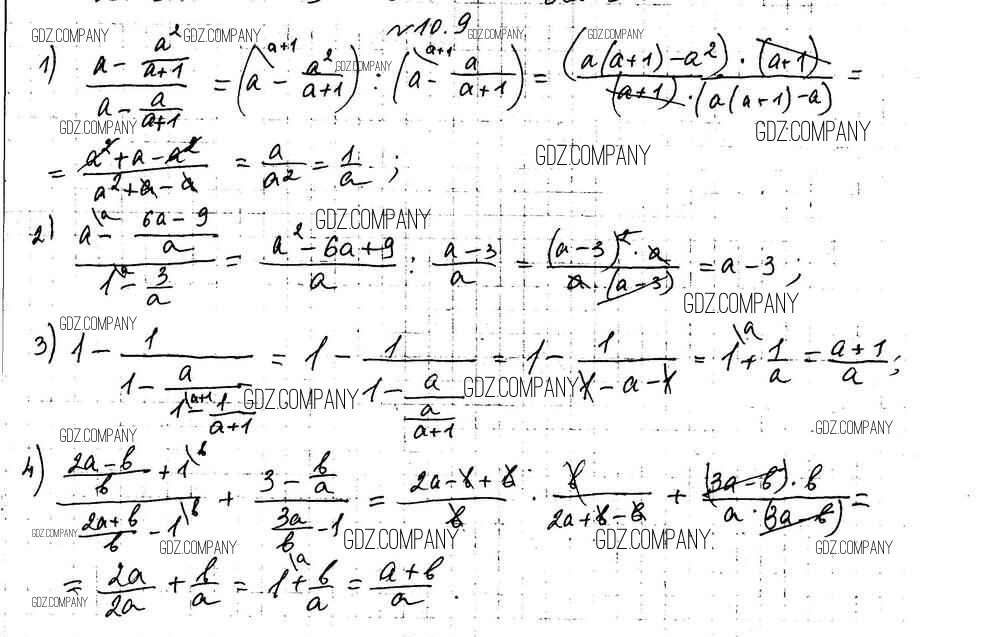 №10.9
GDZ.COMPANY GDZ.COMPANY GDZ.COMPANY GDZ.COMPANY
1) (a - a²/(a+1))/(a - a/(a+1)) = (a\a+1 - a²/(a+1)) : (a\a+1 - a/(a+1)) = ((a(a+1) - a²) · (a+1))/((a+1) · (a(a+1) - a)) =
GDZ.COMPANY
GDZ.COMPANY GDZ.COMPANY
GDZ.COMPANY
= (a² + a - a²)/(a² + a - a) = a/a² = 1/a ;
GDZ.COMPANY
2) (a\a - (6a - 9)/a)/(1\a - 3/a) = (a² - 6a + 9)/a : (a - 3)/a = ((a - 3)² · a)/(a · (a - 3)) = a - 3 ;
GDZ.COMPANY
GDZ.COMPANY
3) 1 - 1/(1 - a/(1\a+1 - 1/(a+1))) = 1 - 1/(1 - a/(a/(a+1))) = 1 - 1/(1 - a - 1) = 1\a + 1/a = (a+1)/a ;
GDZ.COMPANY GDZ.COMPANY
GDZ.COMPANY GDZ.COMPANY
4) ((2a - b)/b + 1\b)/((2a + b)/b - 1\b) + (3 - b/a)/(3a/b - 1) = (2a - b + b)/b · b/(2a + b - b) + ((3a - b) · b)/(a · (3a - b)) =
GDZ.COMPANY GDZ.COMPANY GDZ.COMPANY GDZ.COMPANY GDZ.COMPANY
= 2a/2a + b/a = 1\a + b/a = (a + b)/a .
GDZ.COMPANY